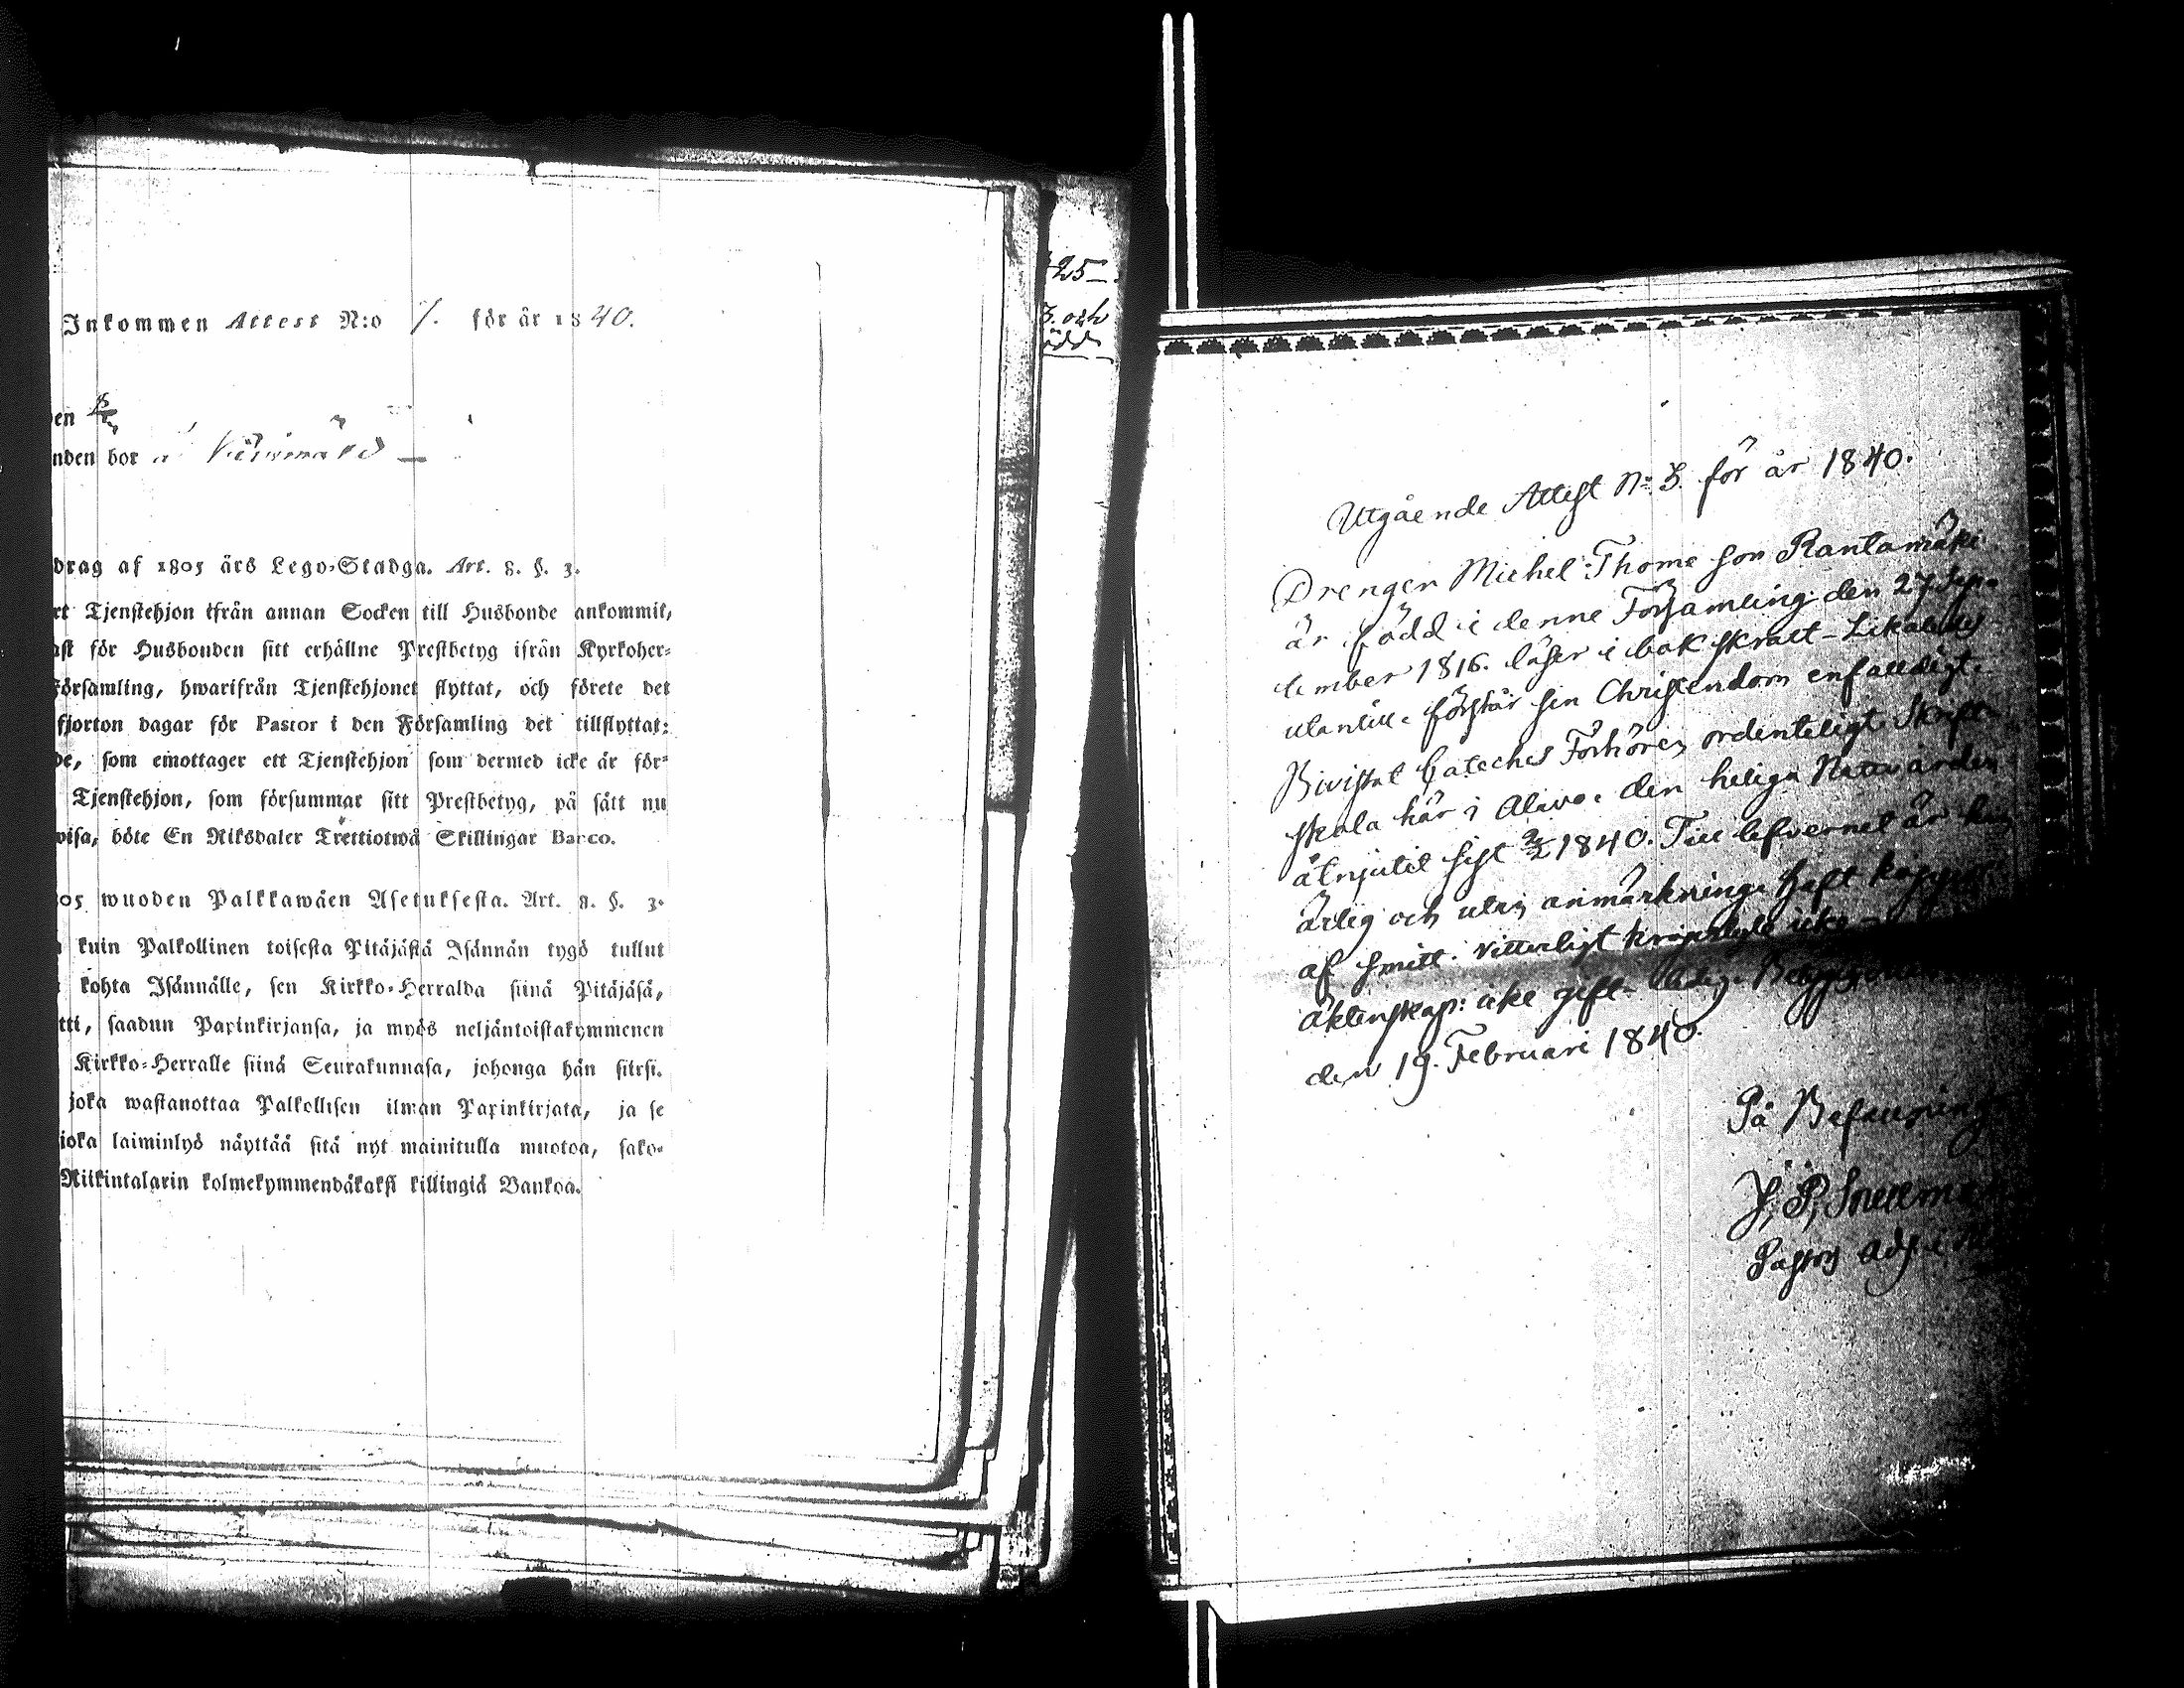 Inkommen Attest N:o 7. för år 1840.
en
nden bor å
drag af 1805 års Lego-Stadga. Art. 8. §. 3.
rt Tjenstehjon ifrån annan Socken till Husbonde ankommit,
ast för Husbonden sitt erhållne Prestbetyg ifrån Kyrkoher-
Församling, hwarifrån Tjenstehjonet flyttat, och förete det
fjorton dagar för Pastor i den Församling det tillflyttat:
de, som emottager ett Tjenstehjon som dermed icke är för-
Tjenstehjon, som försummar sitt Prestbetyg, på sätt nu
visa, böte En Riksdaler Trettiotwå Skillingar Banco.
805 wuoden Palkkawäen Asetuksesta. Art. 8. §. 3.
kuin Palkollinen toisesta Pitäjästä Isännän tygö tullut
kohta Isännälle, sen Kirkko-Herralda siinä Pitäjäsä,
tti, saadun Papinkirjansa, ja myös neljäntoistakymmenen
Kirkko-Herralle siinä Seurakunnasa, johonga hän siirsi.
joka wastanottaa Palkollisen ilman Papinkirjata, ja se
joka laiminlyö näyttää sitä nyt mainitulla muotoa, sako-
Riikintalarin kolmekymmendäkaksi killingiä Bankoa.
25
3. och
ödd
Utgående Attest N:o 3. för år 1840.
Drengen Michel Thome son Rantamäki
är född i denne Församling den 27 Sep-
tember 1816. läser i bok skralt - Likaledes
utantill. förstår sin Christendom enfaldigt.
Bivistat Cateches Förhören ordenteligt Skrift
skola här i Alavo. den heliga Nattvarden
åtnjutit sist 2/2 1840. Till lefvernet är han
ärlig och utan anmärkning. Haft koppor
af smitt. vitterligt kropslyte icke
äktenskap: icke gift - ledig. Betygar
den 19. Februari 1840.
På Befallning
J. P. Snellman
Pastors adj. i